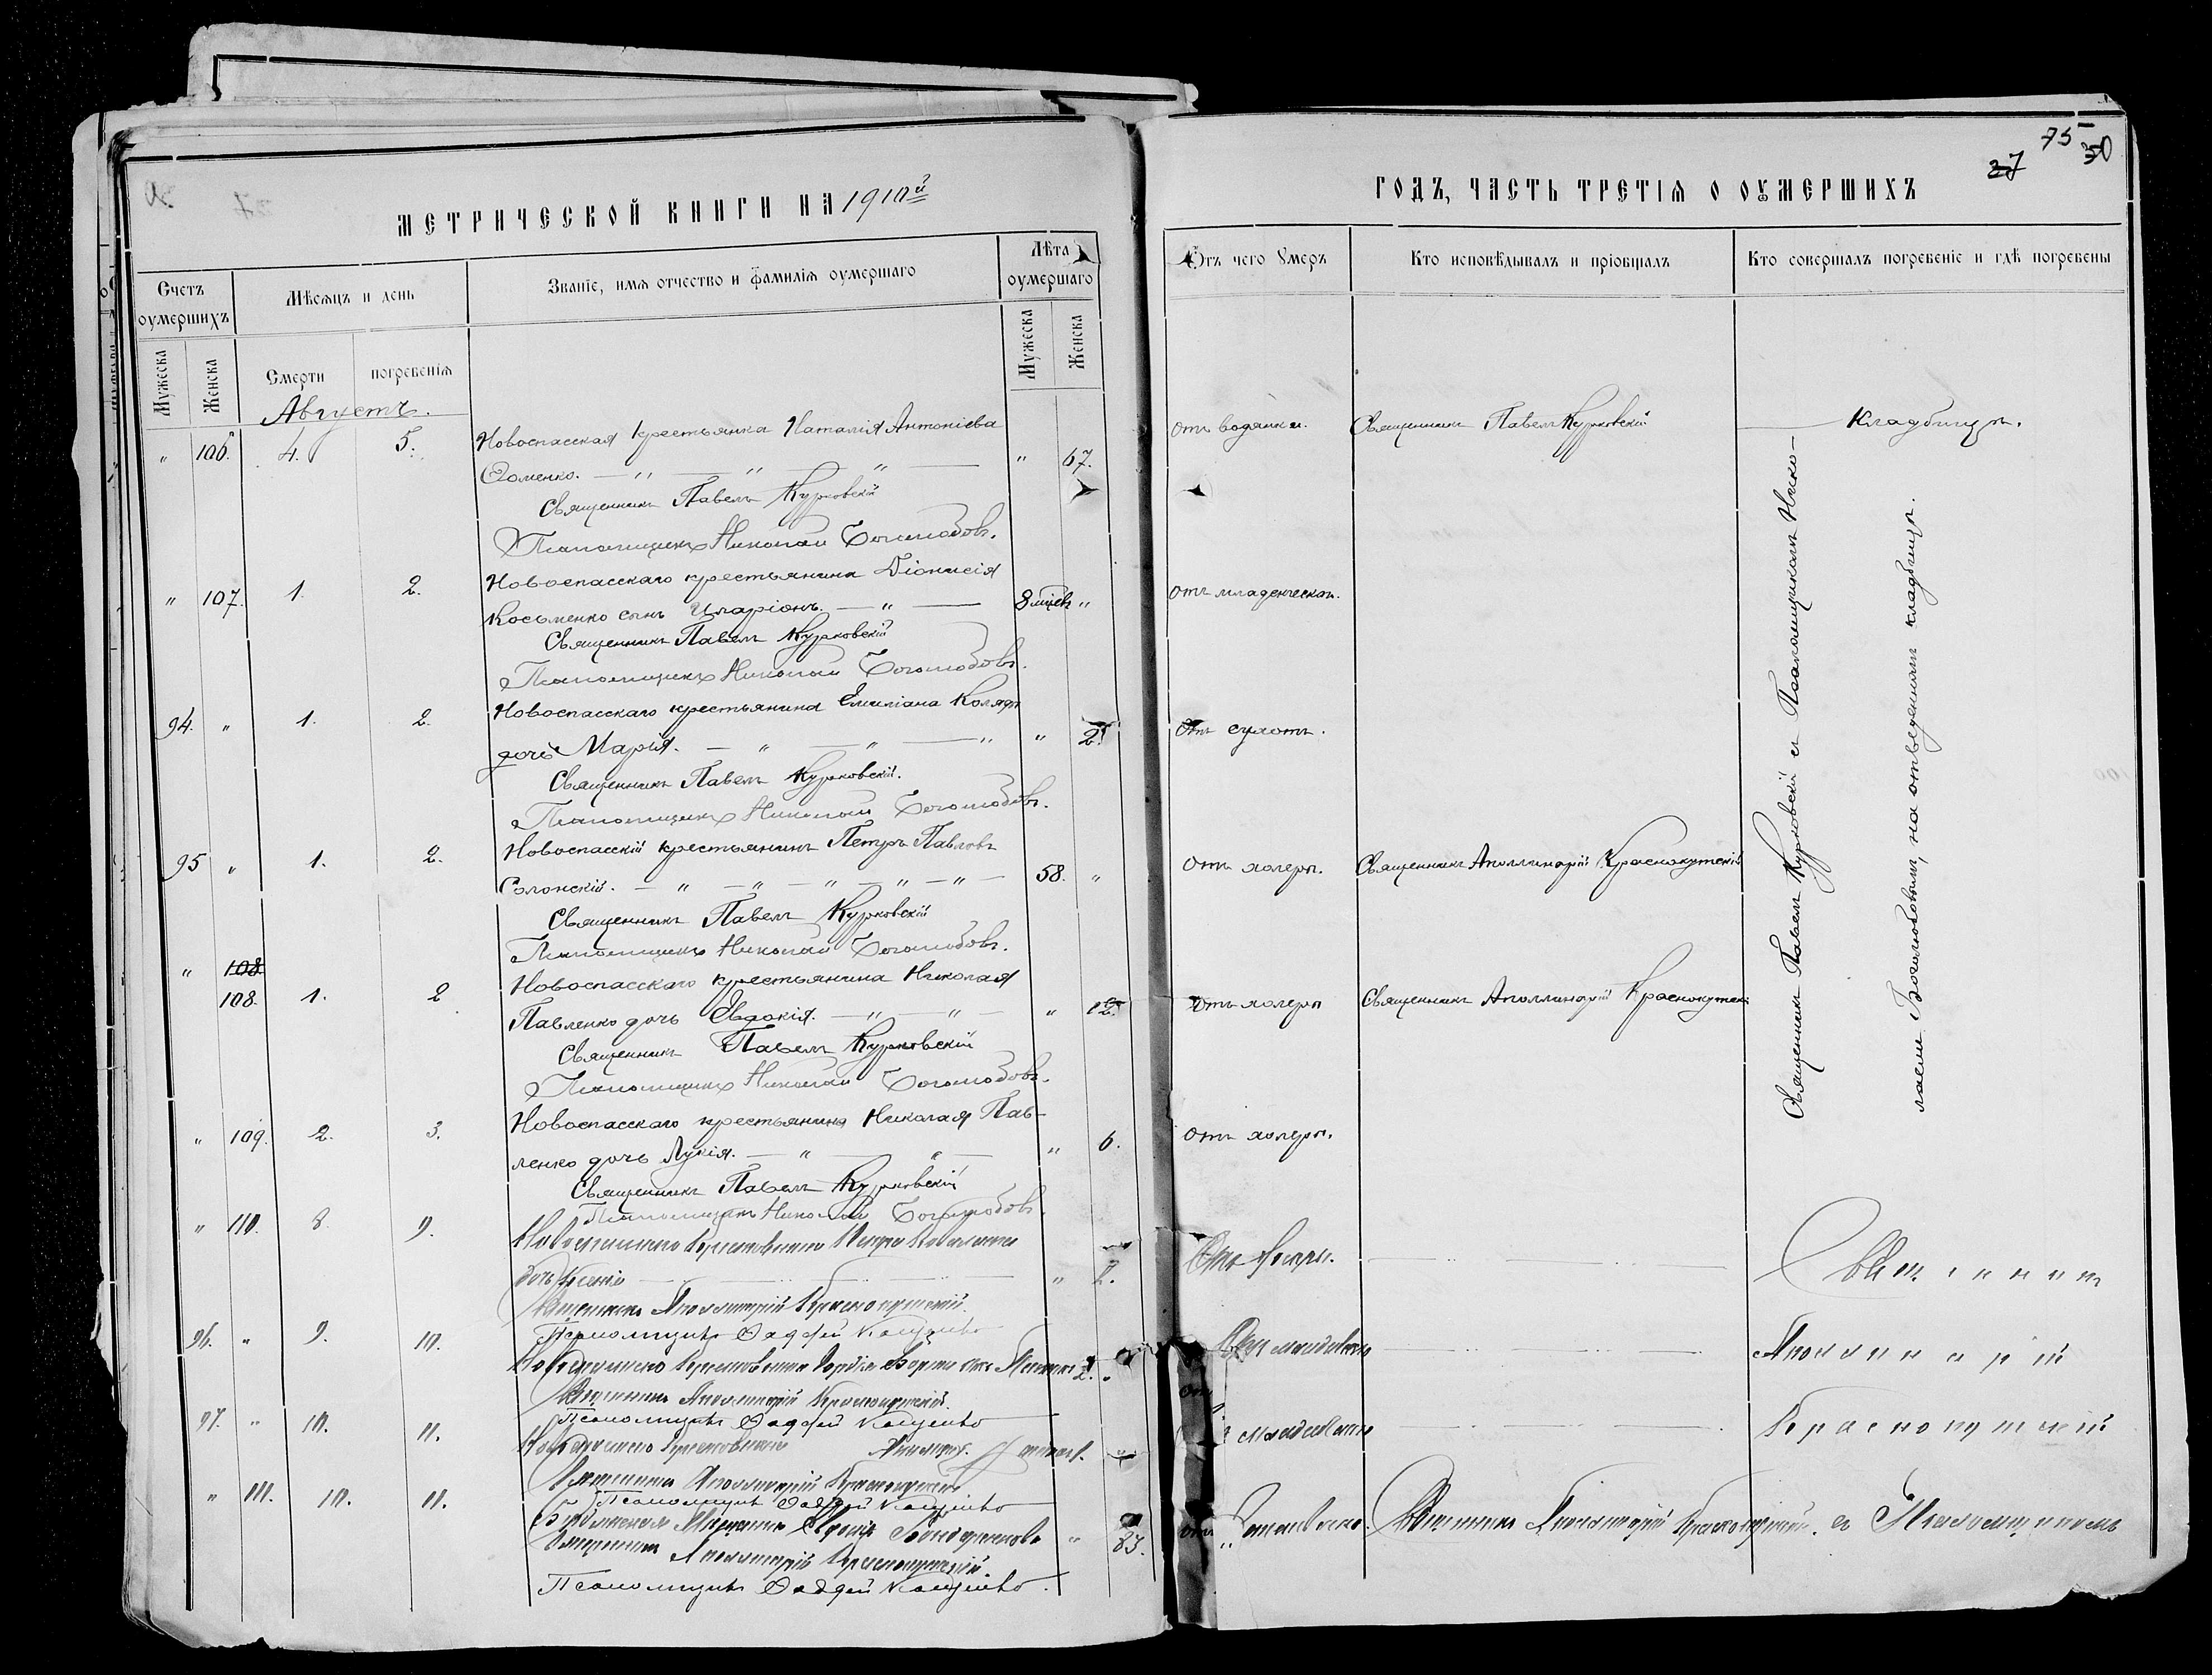 75
37 50
МЕТРИЧЕСКОЙ КНИГИ НА 1910й
ГОДЪ, ЧАСТЬ ТРЕТІЯ О ОУМЕРШИХЪ
Счетъ оумершихъ
Мѣсяцъ и день
Званіе, имя отчество и фамилія оумершаго
Лѣта оумершаго
Отъ чего умеръ
Кто исповѣдывалъ и пріобщалъ
Кто совершалъ погребеніе и гдѣ погребены
Мужеска
Женска
Смерти
погребенія
Мужеска
Женска
Августъ.
" 106. 4. 5. Новоспасская крестьянка Наталія Антоніева
Фоменко. — " — " — " — " 67.
отъ водянки. Священникъ Павелъ Курковскій
кладбищѣ.
Священникъ Павелъ Курковскій
Псаломщикъ Николай Боголюбовъ.
" 107. 1. 2. Новоспасскаго крестьянина Діонисія
Косьменко сынъ Иларіонъ. — " — 8 мцевъ "
отъ младенческой.
Священникъ Павелъ Курковскій
Псаломщикъ Николай Боголюбовъ.
94. " 1. 2. Новоспасскаго крестьянина Емиліана Коляды
дочь Марія. — " — " — " " 2.
отъ сухотъ.
Священникъ Павелъ Курковскій.
Псаломщикъ Николай Боголюбовъ.
95 " 1. 2. Новоспасскій крестьянинъ Петръ Павловъ
Солонскій. — " — " — " — " — " — 58. "
отъ холеры. Священникъ Аполлинарій Краснокутскій
Священникъ Павелъ Курковскій
Псаломщикъ Николай Боголюбовъ.
" 108
108. 1. 2 Новоспасскаго крестьянина Николая
Павленко дочь Евдокія. — " — " — " 12.
отъ холеры Священникъ Аполлинарій Краснокутскій
Священникъ Павелъ Курковскій
Псаломщикъ Николай Боголюбовъ.
" 109. 2. 3. Новоспасскаго крестьянина Николая Пав-
ленко дочь Лукія. — " — " — " 6.
отъ холеры.
Священникъ Павелъ Курковскій
Псаломщикъ Николай Боголюбовъ.
Священникъ Павелъ Курковскій съ Псаломщикомъ Нико-
лаемъ Боголюбовымъ, на отведенномъ кладбищѣ.
" 110. 8. 9. Новоспасскаго крестьянина
дочь Ксенія " 2.
Отъ холеры.
Священникъ
Священникъ Аполлинарій Краснокутскій.
Псаломщикъ Фаддей
96. " 9. 10. Новоспасскаго крестьянина 2. "
Аполлинарій
Священникъ Аполлинарій Краснокутскій.
Псаломщикъ Фаддей
97. " 10. 11. Новоспасскаго крестьянина
Краснокутскій
Священникъ Аполлинарій Краснокутскій
Псаломщикъ Фаддей
" 111. 10. 11. " 83.
Священникъ Аполлинарій Краснокутскій. съ Псаломщикомъ
Священникъ Аполлинарій Краснокутскій.
Псаломщикъ Фаддей